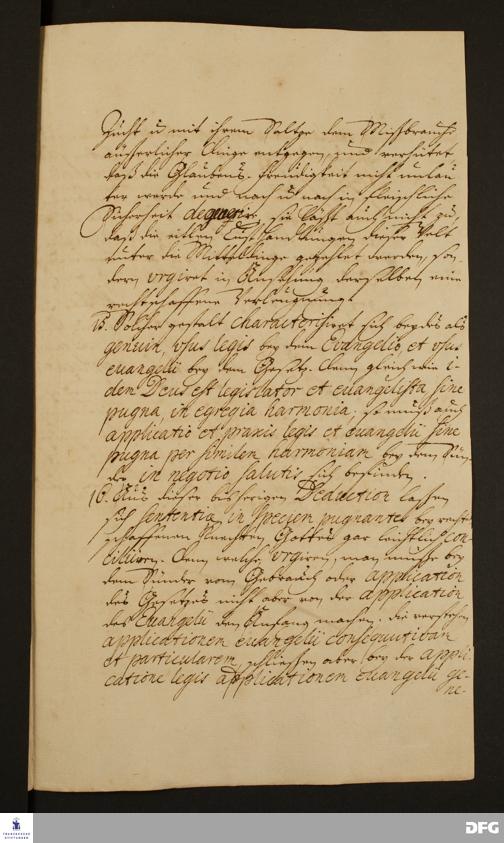 Zucht u mit ihrem Saltze dem Mißbrauche
äusserlicher Dinge entgegen, und verhütet
daß die Glaubens-freudigkeit nicht unlau-
ter werde und nach u nach in fleischliche
Sicherheit degenerire, sie läst auch nicht zu,
daß die eitlen Lusthandlungen dieser Welt
unter die Mitteldinge gezehlet werden, son-
dern urgiret in Ansehung derselben eine
rechtschaffene Verleugnung.
15. Solcher gestalt characterisiret sich beydes als
genuin, usus legis bey dem Evangelio, et usus
euangelii bey dem Gesetz. Denn gleich wie i-
dem Deus est legislator et euangelista sine
pugna in egregia harmonia; so muß auch
applicatio et praxis legis et euangelii sine
pugna per similem harmoniam bey dem Sün-
der in negotio salutis sich befinden.
16. Aus dieser bisherigen Deduction lassen
sich sententia in speciem pugnantes bey recht-
schaffenen Knechten Gottes gar leichtlich con-
ciliiren. Denn welche urgiren, man müsse bey
dem Sünder vom Gebrauch oder application
des Gesetzes nicht aber von der application
des Euangelii den Anfang machen, die verstehen
applicationem euangelii consequutivam
et particularem, schliessen aber bey der appli-
catione legis applicationem euangelii ge-
ne-
FRANCKESCHE STIFTUNGEN
DFG